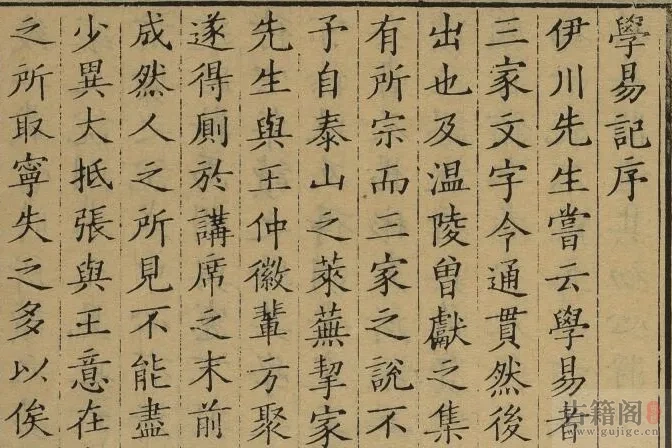 學易記序
伊川先生嘗云學易者
三家文字令通貫然後
出也及温陵曾獻之集
有所宗而三家之說不
予自泰山之萊蕪挈家
先生與王仲徽軰方聚
遂得廁於講席之末前
成然人之所見不能盡
少異大抵張與王意在
之所取寧失之多以俟
古籍阁
www.gujige.cn